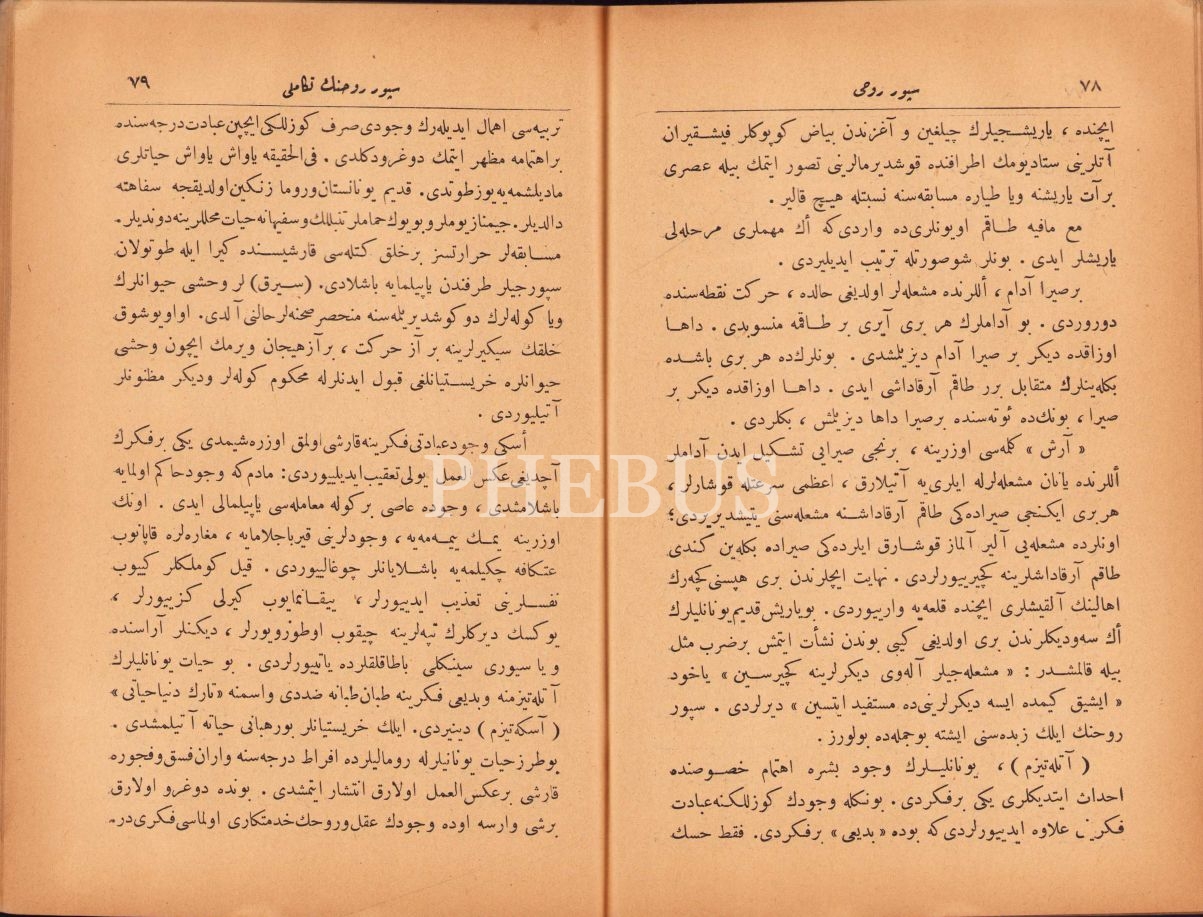 ٧٨
سپور روحی
ایچنده ، یاریشجیلرك چیلغین و آغزندن بیاض كوپوكلر فیشقیران
آتلرینی ستادیومك اطرافنده قوشدیرمالرینی تصور ایتمك بیله عصری
برآت یاریشنه ویا طیاره مسابقه‌سنه نسبتله هیچ قالیر .
مع مافیه طاقم اویونلری‌ده واردی‌كه اڭ مهملری مرحله‌لی
یاریشلر ایدی . بونلر شوصورتله ترتیب ایدیلیردی .
برصیرا آدام ، أللرنده مشعله‌لر اولدیغی حالده ، حركت نقطه‌سنده
دوروردی . بو آداملرك هر بری آیری بر طاقمه منسوبدی . داها
اوزاقده دیكر بر صیرا آدام دیزیلمشدی . بونلرك‌ده هر بری باشده
بكله‌ینلرك متقابل برر طاقم آرقاداشی ایدی . داها اوزاقده دیكر بر
صیرا ، بونك‌ده ئوته‌سنده برصیرا داها دیزیلمش ، بكلردی .
« آرش » كلمه‌سی اوزرینه ، برنجی صیرایی تشكیل ایدن آداملر
أللرنده یانان مشعله‌لرله ایلری‌یه آتیلارق ، اعظمی سرعتله قوشارلر ،
هر بری ایكنجی صیراده‌كی طاقم آرقاداشنه مشعله‌سنی یتیشدیریردی؛
اونلرده مشعله‌یی آلیر آلماز قوشارق ایلرده‌كی صیراده بكله‌ین كندی
طاقم آرقاداشلرینه كچیرییورلردی . نهایت ایچلرندن بری هپسنی كچه‌رك
اهالینك آلقیشلری ایچنده قلعه‌یه وارییوردی . بویاریش قدیم یونانلیلرك
أڭ سه‌ودیكلرندن بری اولدیغی كیبی بوندن نشأت ایتمش برضرب مثل
بیله قالمشدر : « مشعله‌جیلر آله‌وی دیكرلرینه كچیرسین » یاخود
« ایشیق كیمده ایسه دیكرلرینی‌ده مستفید ایتسین » دیرلردی . سپور
روحنك ایلك زبده‌سنی ایشته بوجمله‌ده بولورز .
( آتله‌تیزم ) ، یونانلیلرك وجود بشره اهتمام خصوصنده
احداث ایتدیكلری یكی برفكردی . بونكله وجودك كوزللكنه عبادت
فكرینی علاوه ایدییورلردی‌كه بوده « بدیعی » برفكردی . فقط حسك
٧٩
سپور روحنك تكاملی
تربیه‌سی اهمال ایدیله‌رك وجودی صرف كوزللكی ایچین عبادت درجه‌سنده
براهتمامه مظهر ایتمك دوغرودكلدی . فی‌الحقیقه یاواش یاواش حیاتلری
مادیلشمه‌یه یوز طوتدی . قدیم یونانستان وروما زنكین اولدیقجه سفاهته
دالدیلر . جیمنازیوملر و بویوك حماملر تنبللك و سفیهانه حیات محللرینه دوندیلر .
مسابقه‌لر حرارتسز برخلق كتله‌سی قارشیسنده كیرا ایله طوتولان
سپورجیلر طرفندن یاپیلمایه باشلادی . ( سیرق ) لر وحشی حیوانلرك
ویا كوله‌لرك دوكوشدیریلمه‌سنه منحصر صحنه‌لر حالنی آلدی . اواویوشوق
خلقك سیكیرلرینه بر آز حركت ، برآزهیجان ویرمك ایچون وحشی
حیوانلره خریستیانلغی قبول ایدنلرله محكوم كوله‌لر ودیكر مظنونلر
آتیلیوردی .
أسكی وجود عبادتی فكرینه قارشی اولمق اوزره شیمدی یكی برفكرك
آچدیغی عكس العمل یولی تعقیب ایدیلییوردی : مادم‌كه وجود حاكم اولمایه
باشلامشدی ، وجوده عاصی بركوله معامله‌سی یاپیلمالی ایدی . اونك
اوزرینه یمك ییمه‌مه‌یه ، وجودلرینی قیرباجلامایه ، مغاره‌لره قاپانوب
عتكافه چكیلمه‌یه باشلایانلر چوغالییوردی . قیل كوملكلر كییوب
نفسلرینی تعذیب ایدییورلر ، ییقانمایوب كیرلی كزییورلر ،
یوكسك دیركلرك تپه‌لرینه چیقوب اوطورویورلر ، دیكنلر آراسنده
و یا سیوری سینكلی باطاقلقلرده یاتییورلردی . بو حیات یونانلیلرك
آتله‌تیزمنه وبدیعی فكرینه طبان طبانه ضددی واسمنه « تارك دنیا حیاتی »
( آسكه‌تیزم ) دینیردی . ایلك خریستیانلر بورهبانی حیاته آتیلمشدی .
بوطرز حیات یونانیلرله رومالیلرده افراط درجه‌سنه واران فسق وفجوره
قارشی برعكس العمل اولارق انتشار ایتمشدی . بونده دوغرو اولارق
برشی وارسه اوده وجودك عقل وروحك خدمتكاری اولماسی فكری‌در .
PHEBUS